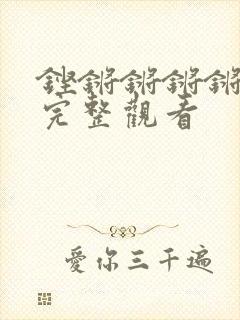 鏗鏘鏘鏘鏘
完整觀看
愛你三千遍